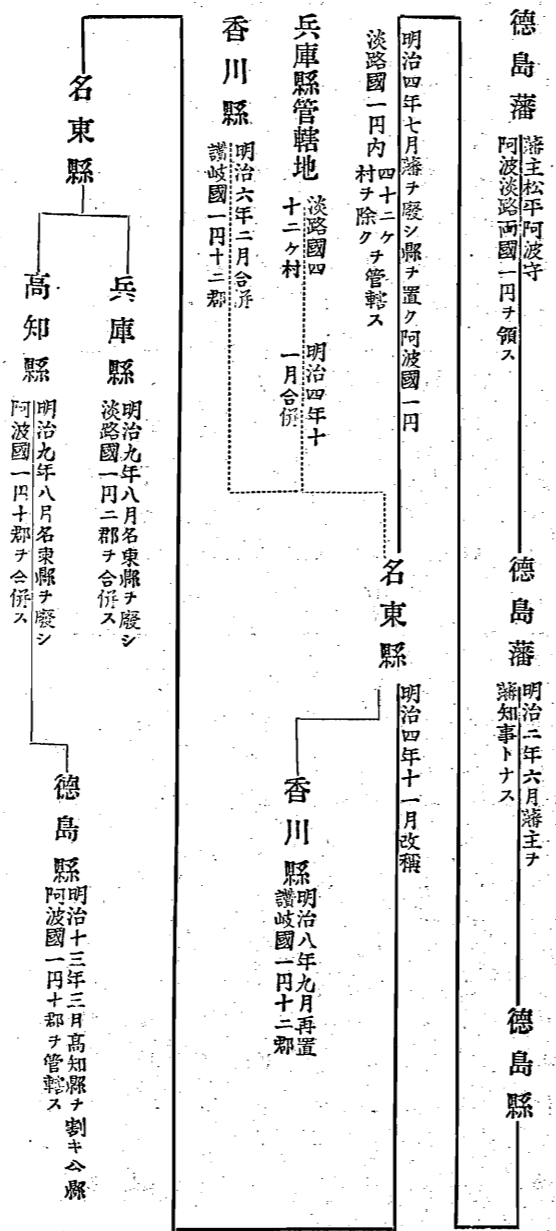 德島藩
藩主松平阿波守
阿波淡路両國一円ヲ領ス
德島藩
明治二年六月藩主ヲ
藩知事トナス
德島縣
明治四年七月藩ヲ廢シ縣ヲ置ク阿波國一円
淡路國一円内四十二ケ村ヲ除クヲ管轄ス
名東縣
明治四年十一月改稱
兵庫縣管轄地
淡路國四
十二ケ村
明治四年十
一月合併
香川縣
明治六年二月合併
讃岐國一円十二郡
香川縣
明治八年九月再置
讃岐國一円十二郡
名東縣
兵庫縣
明治九年八月名東縣ヲ廢シ
淡路國一円二郡ヲ合併ス
高知縣
明治九年八月名東縣ヲ廢シ
阿波國一円十郡ヲ合併ス
德島縣
明治十三年三月高知縣ヲ割キ仝縣
阿波國一円十郡ヲ管轄ス